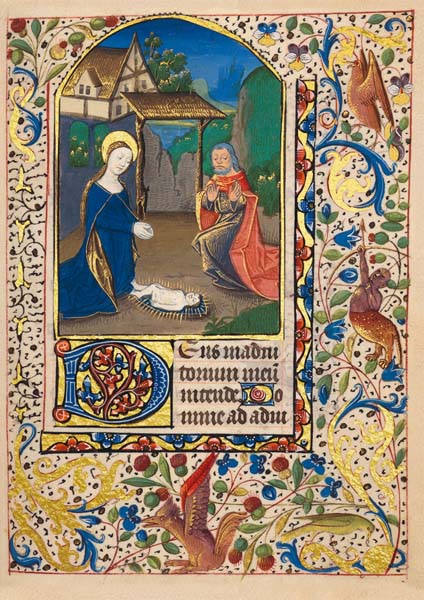 DEus in adiu
torium meū
intende Do
mine ad adiu